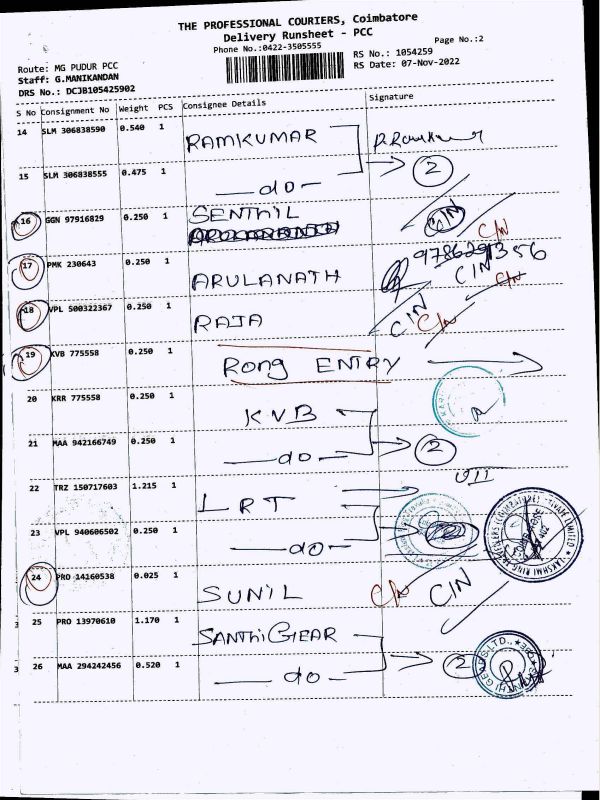 THE PROFESSIONAL COURIERS, Coimbatore
Delivery Runsheet - PCC
Phone No.:0422-3505555
Page No.:2
Route: MG PUDUR PCC
Staff: G.MANIKANDAN
DRS No.: DCJB105425902
RS No.: 1054259
RS Date: 07-Nov-2022
S No Consignment No Weight PCS Consignee Details Signature
14 SLM 306838590 0.540 1 RAMKUMAR
15 SLM 306838555 0.475 1 do 2
16 GGN 97916829 0.250 1 SENTHIL C/N C/N
17 PMK 230643 0.250 1 ARULANATH 9786291356 C/N C/N
18 VPL 500322367 0.250 1 RAJA C/N C/N
19 KVB 775558 0.250 1 Rong ENTRY
20 KRR 775558 0.250 1 KVB
21 MAA 942166749 0.250 1 do 2
22 TRZ 150717603 1.215 1 LRT
23 VPL 940606502 0.250 1 do
24 PRO 14160538 0.025 1 SUNIL C/N C/N
25 PRO 13970610 1.170 1 SANTHiGEAR
26 MAA 294242456 0.520 1 do 2